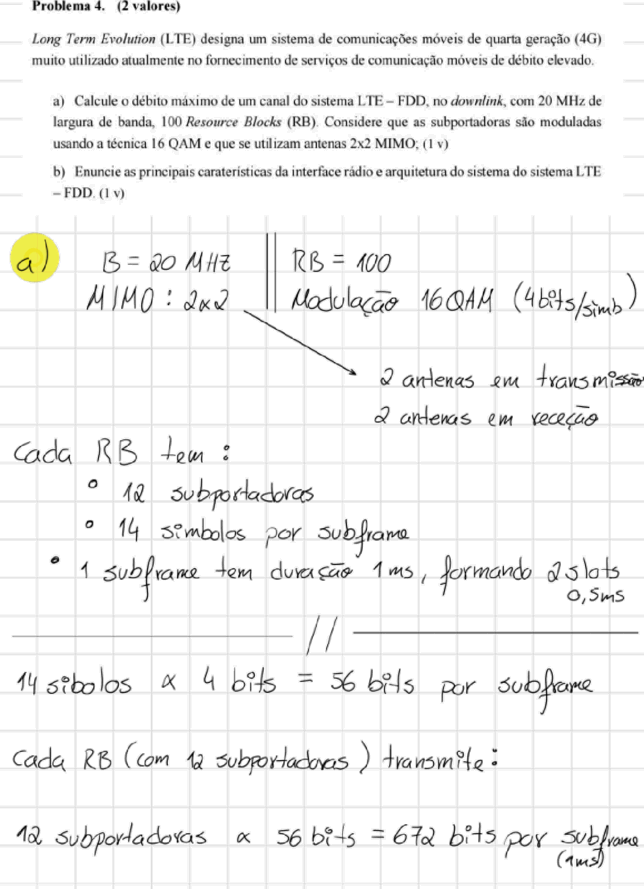 Problema 4. (2 valores)
Long Term Evolution (LTE) designa um sistema de comunicações móveis de quarta geração (4G)
muito utilizado atualmente no fornecimento de serviços de comunicação móveis de débito elevado.
a) Calcule o débito máximo de um canal do sistema LTE – FDD, no downlink, com 20 MHz de
largura de banda, 100 Resource Blocks (RB). Considere que as subportadoras são moduladas
usando a técnica 16 QAM e que se utilizam antenas 2x2 MIMO; (1 v)
b) Enuncie as principais caraterísticas da interface rádio e arquitetura do sistema do sistema LTE
– FDD. (1 v)
a) B = 20 MHz || RB = 100
MIMO : 2x2 || Modulação 16QAM (4bits/simb)
2 antenas em transmissão
2 antenas em receção
Cada RB tem :
° 12 subportadoras
° 14 símbolos por subframe
• 1 subframe tem duração 1ms, formando 2 slots
0,5ms
//
14 síbolos x 4 bits = 56 bits por subframe
Cada RB (com 12 subportadoras) transmite :
12 subportadoras x 56 bits = 672 bits por subframe
(1ms)